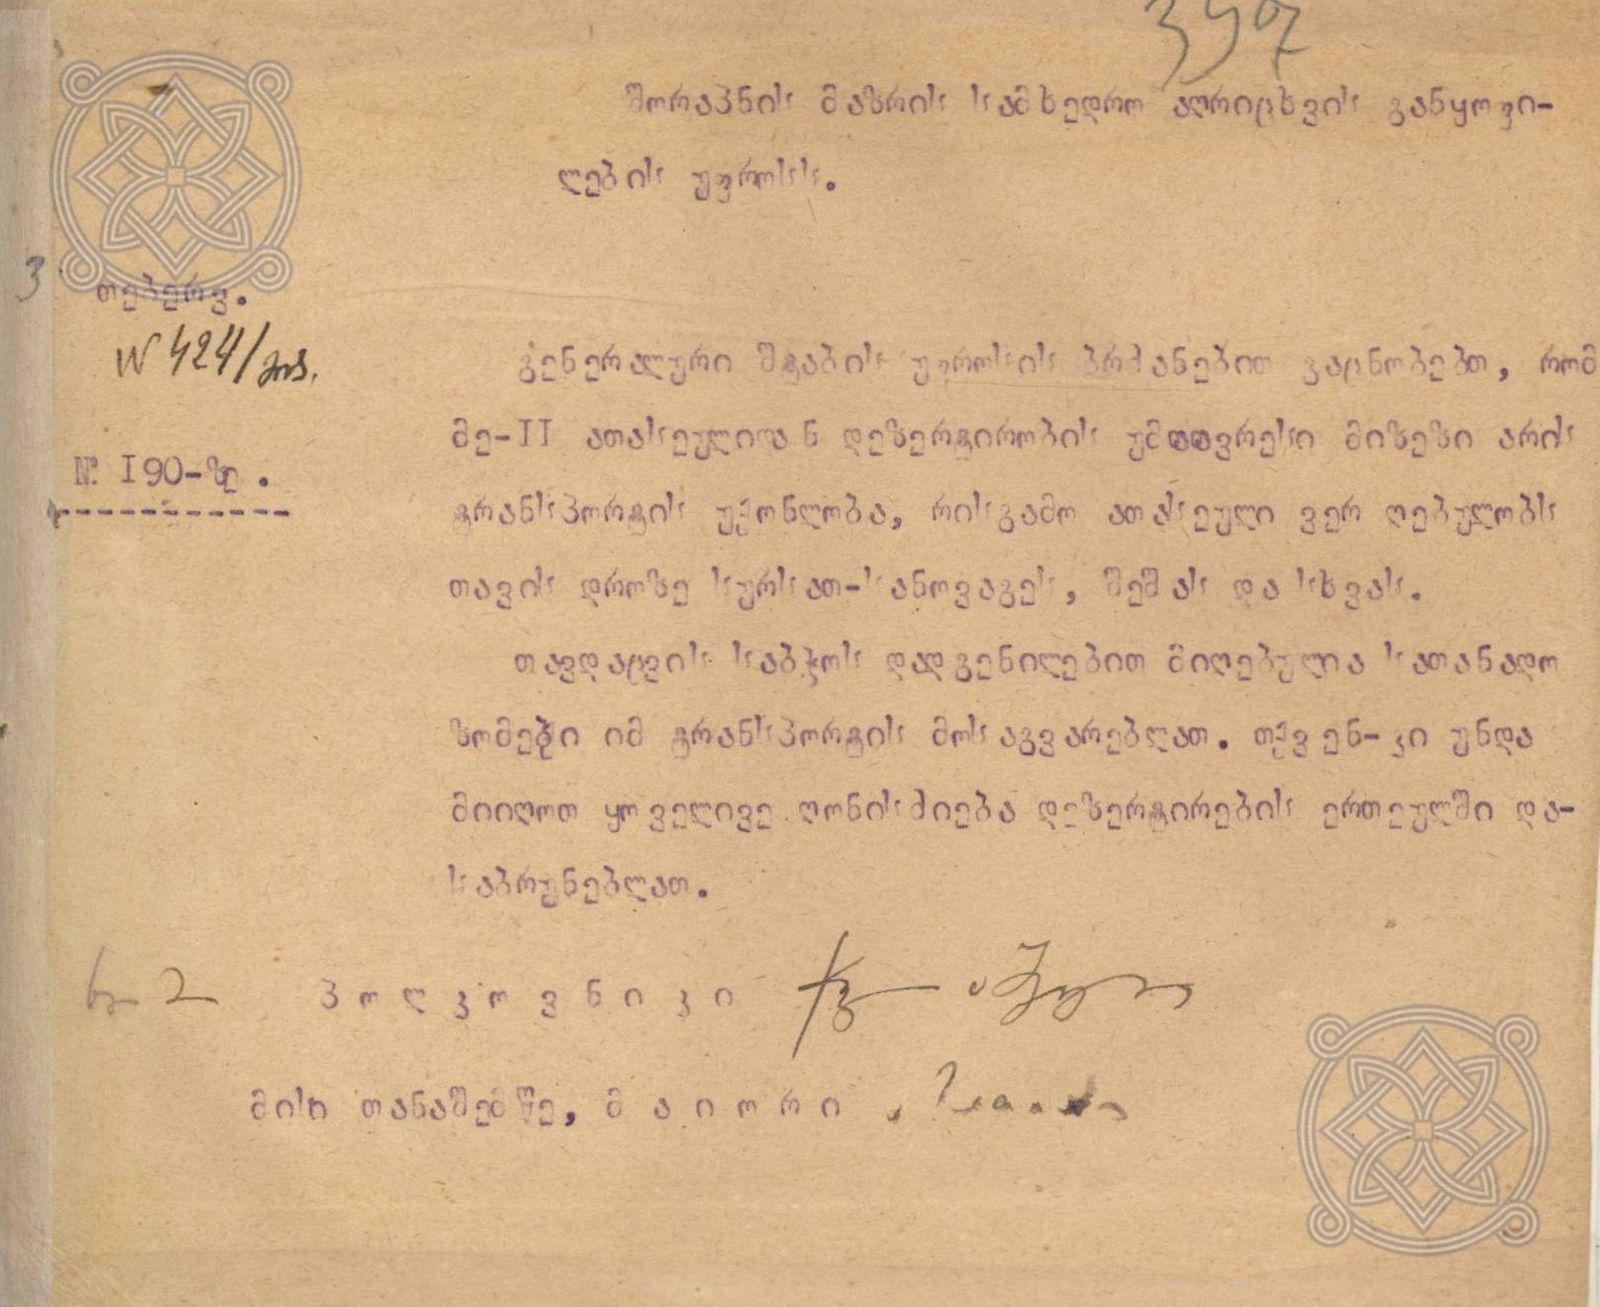 397
შორაპნის მაზრის სამხედრო აღრიცხვის განყოფი-
ლების უფროსს.
3 თებერვ.
N 424/
გენერალური შტაბის უფროსის ბრძანებით გაცნობებთ, რომ
მე-II ათასეულიდან დეზერტირობის უმთავრესი მიზეზი არის
№ I90-ზე.
ტრანსპორტის უქონლობა, რისგამო ათასეული ვერ ღებულობს
თავის დროზე სურსათ-სანოვაგეს, შეშას და სხვას.
თავდაცვის საბჭოს დადგენილებით მიღებულია სათანადო
ზომები იმ ტრანსპორტის მოსაგვარებლათ. თქვენ-კი უნდა
მიიღოთ ყოველივე ღონისძიება დეზერტირების ერთეულში და-
საბრუნებლათ.
პოლკოვნიკი
მისი თანაშემწე, მაიორი